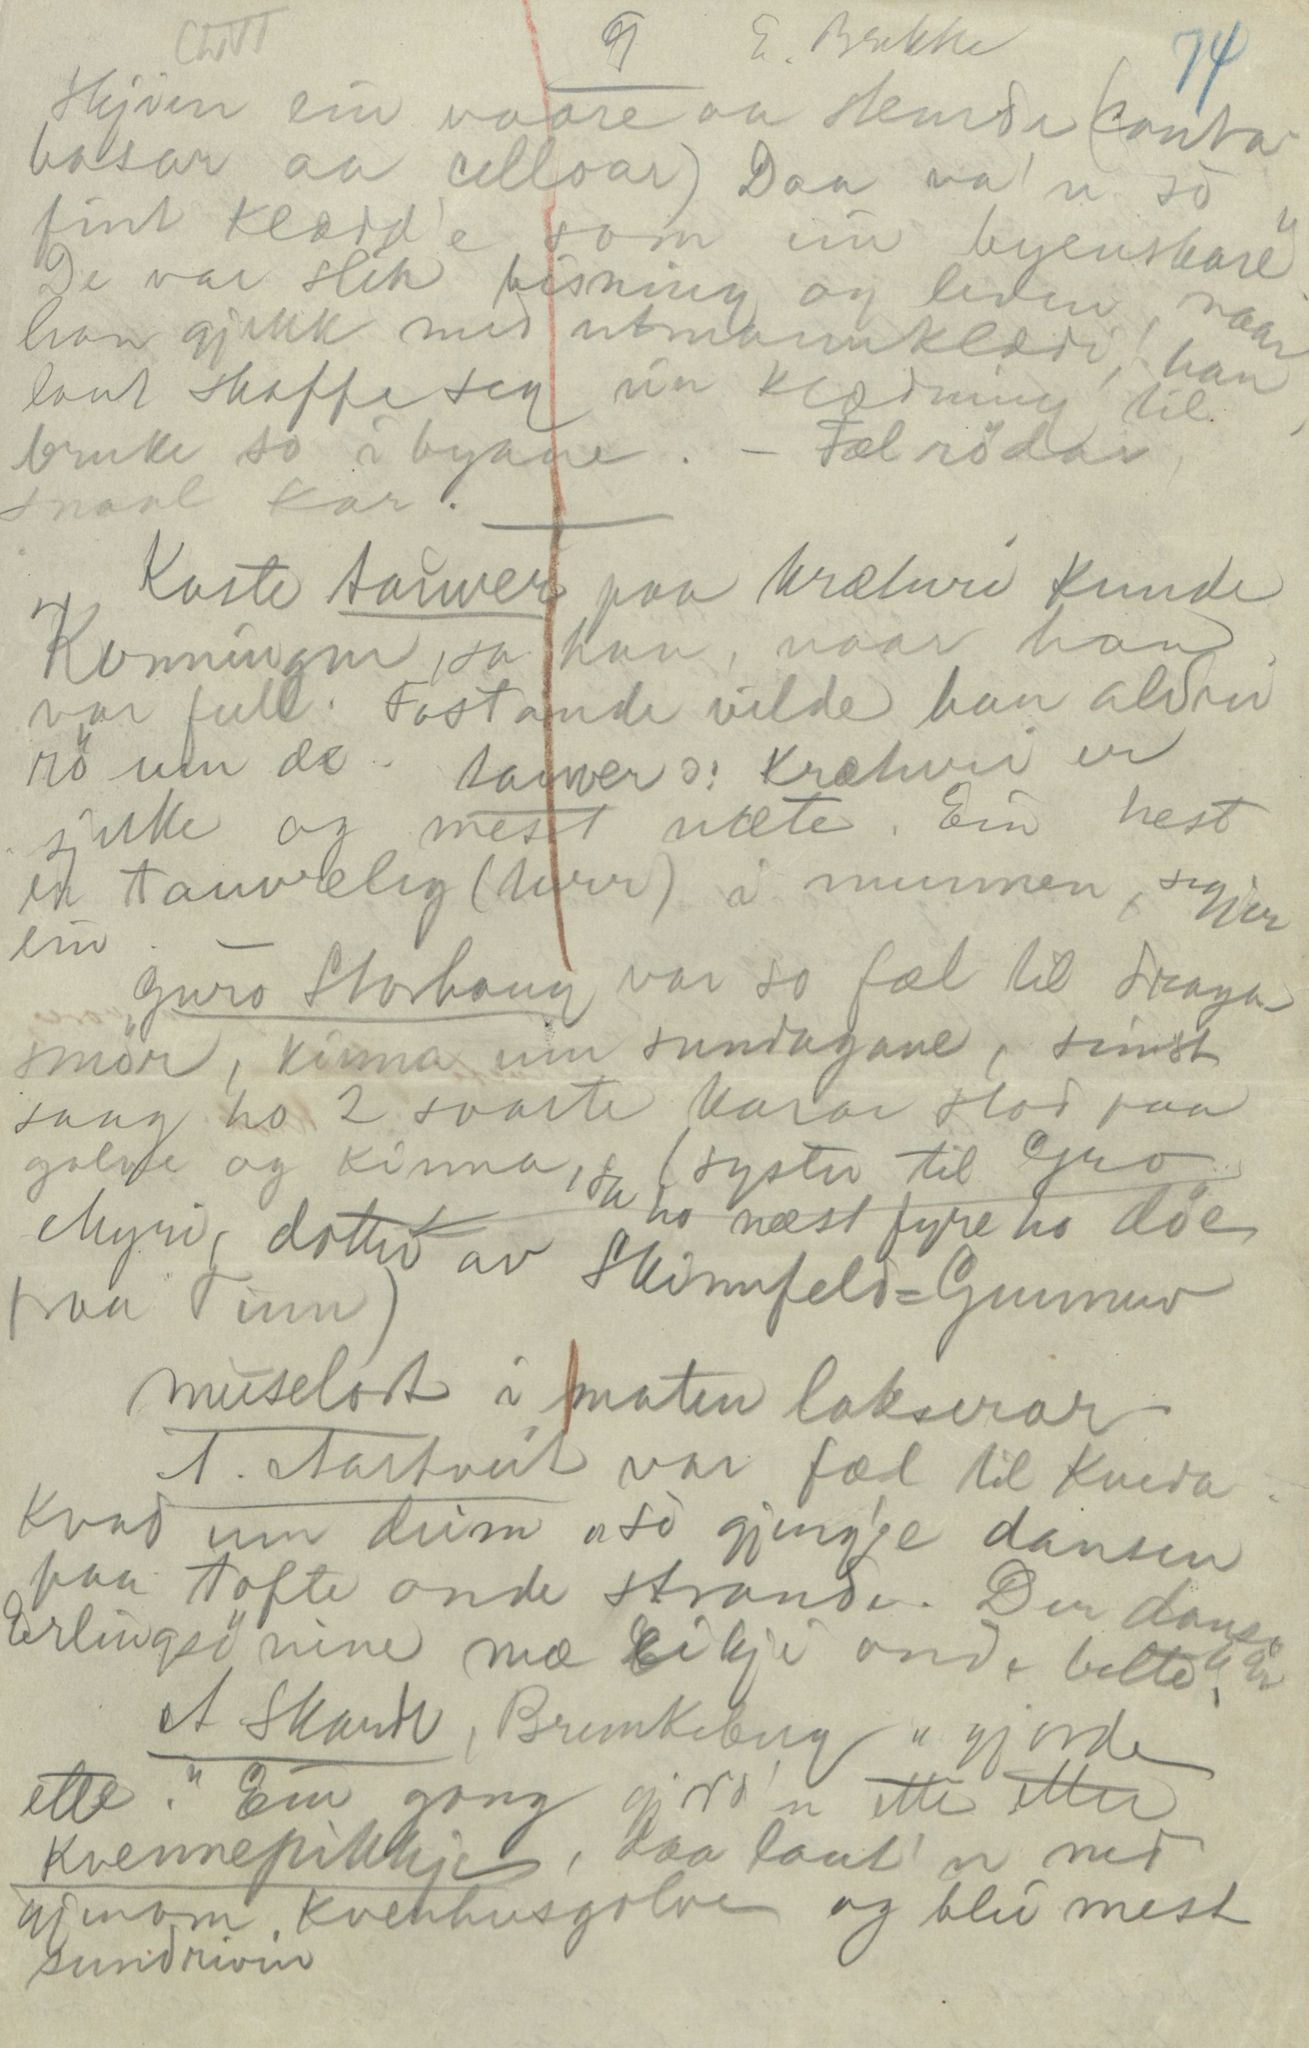 9 E. Brekke 74
Skjien ein vaare aa Stemde (contra-
basar aa celloar) Daa va'n so
fint klædd'e som ein byenskare"
De var slik hisning og leden, naar
han gjekk med utmannklædi, han
laut skaffe seg ein klædning til
bruke so i byane. - Fæl rödar,
snaal kar.
Kaste tauver paa kræturi kunde
Konningen, sa han, naar han
var full. Fastande vilde han aldri
rö um dæ. tauver ɔ: kræturi er
sjuke og mest uæte. Ein hest
er tauvreleg (turr) i munnen, segjer
ein.
Guro Storhaug var so fæl til draga
smör, kinna um sundagane, sinst
saag ho 2 svarte karar stod paa
golve og kinna, sa ho næst fyre ho döe
(syster til Gro
Myri, dotter av Skinnfeld=Gunnar
fraa Tinn)
müselort i maten lakserar
A. Aartveit var fæl til kveda.
Kvad um deim "so gjeng'e dansen
paa tofte onde strande. Der dansar
Erlingsönine mæ Eikji onde belte.
A Skarde, Brunkeberg "gjorde
ette." Ein gong gjord'n ette etter
kvennepikkje, daa laut'n ned
gjenom kvenhusgolve og blei mest
sundrivin